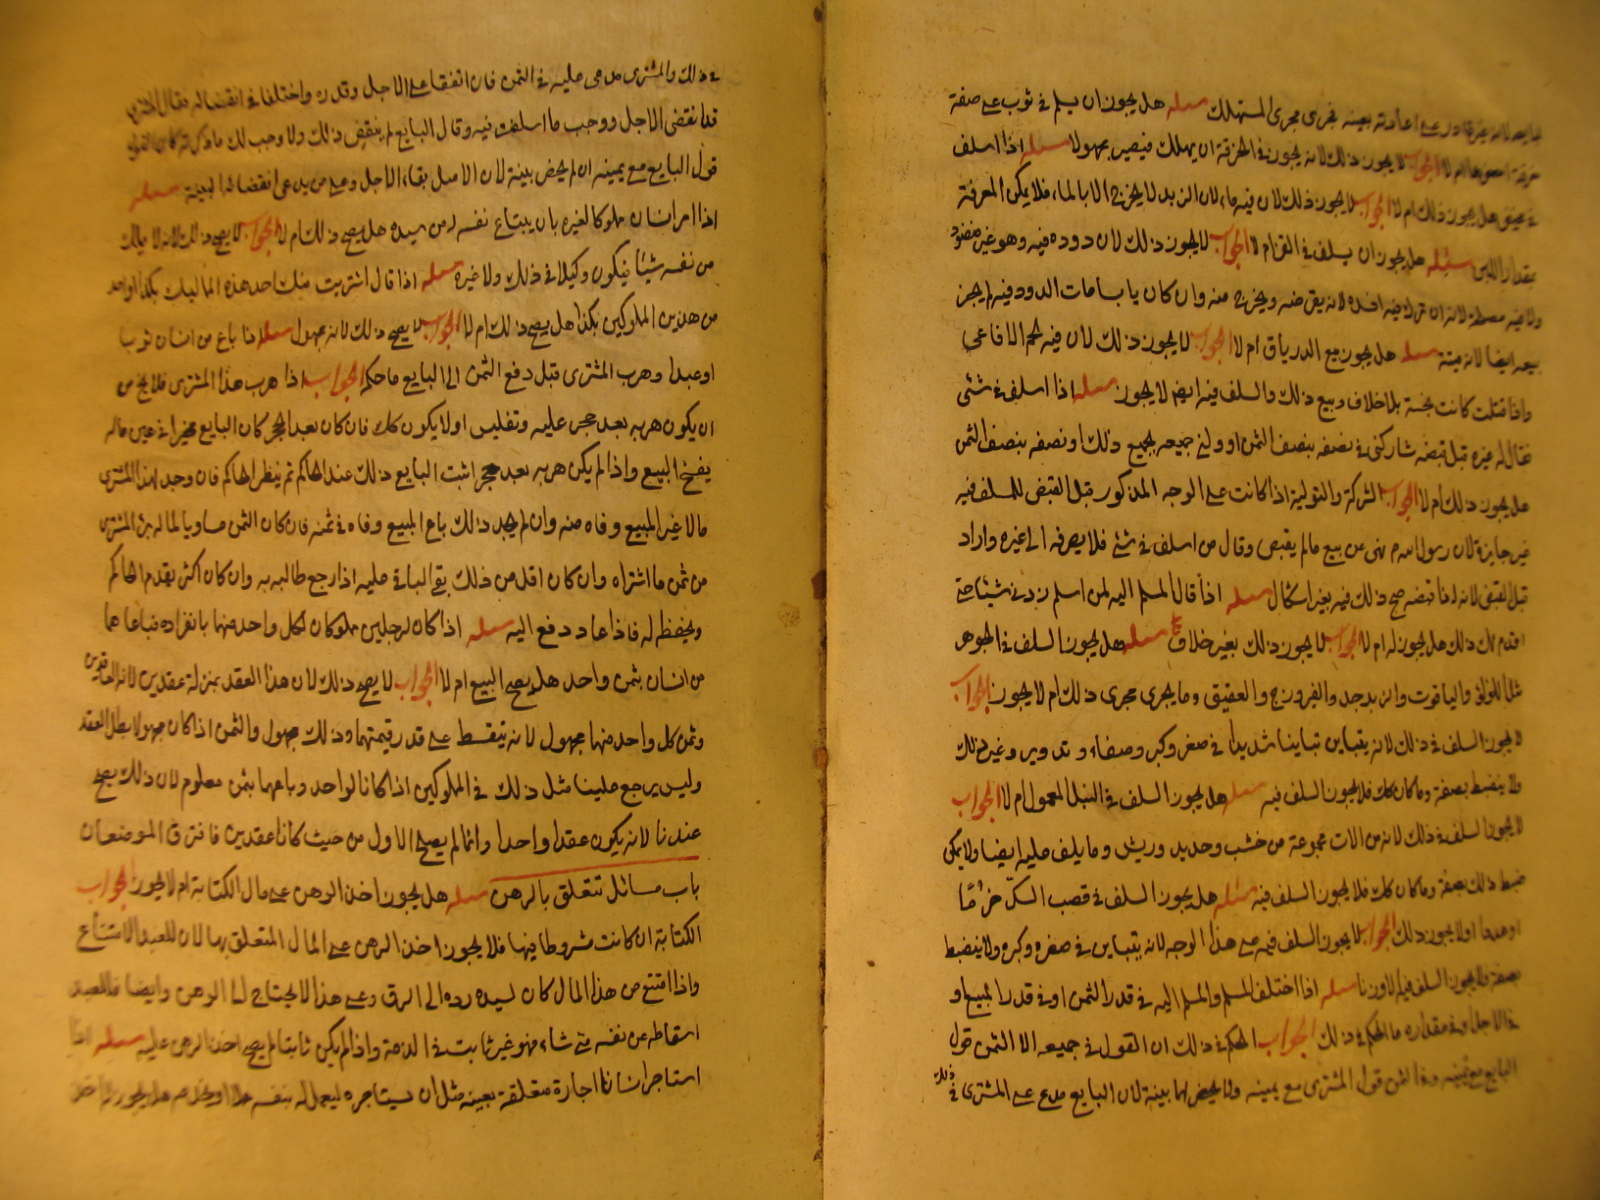 قادر على اعادته بعينه فجرى مجرى المستهلك مسئله هل يجوز ان يسلم فى ثوب على صفة
خرقة ام لا الجواب لا يجوز ذلك لانه يجوز فى الخرقة ان يهلك فيصير مجهولا مسئله اذا اسلف
فى مخيض هل يجوز ذلك ام لا الجواب لا يجوز ذلك لان فيه ماء لان الزبد لا يخرج الا بالماء فلا يمكن المعرفة
بمقدار اللبن مسئله هل يجوز ان يسلف فى القز ام لا الجواب لا يجوز ذلك لان دوده فيه وهو غير مقصود
ولا فيه مصلحة لانه ان ترك فيه افسده لانه يقرضه ويخرج منه وان كان يابسا مات الدود فيه لم يجز
بيعه ايضا لانه ميتة مسئله هل يجوز بيع الدرياق ام لا الجواب لا يجوز ذلك لان فيه لحم الافاعى
واذا قتلت كانت نجسة بلا خلاف وبيع ذلك والسلف فيه ايضا لا يجوز مسئله اذا اسلف فى شئ
فقال له غيره قبل قبضه شاركنى فى نصفه بنصف الثمن او ولنى جميعه بجميع ذلك او نصفه بنصف الثمن
هل يجوز ذلك ام لا الجواب الشركة والتولية اذا كانت على الوجه المذكور قبل القبض للسلف فيه
غير جايزة لان رسول الله نهى عن بيع مالم يقبض وقال من اسلف فى شئ فلا يصرفه الى غيره واراد
قبل القبض لانه اذا قبضه صح ذلك فيه بغير اشكال مسئله اذا قال المسلم اليه لمن اسلم زدنى شيئا حتى
اقدم لك ذلك هل يجوز له ام لا الجواب لا يجوز ذلك بغير خلاف مسئله هل يجوز السلف فى الجوهر
مثل اللؤلؤ والياقوت والزبرجد والفيروزج والعقيق وما يجرى مجرى ذلك ام لا يجوز الجواب
لا يجوز السلف فى ذلك لانه يتباين تباينا شديدا فى صغر وكبر وصفاء وتدوير وغير ذلك
ولا ينضبط بصفة وما كان كك فلا يجوز السلف فيه مسئله هل يجوز السلف فى النبل المعمول ام لا الجواب
لا يجوز السلف فى ذلك لانه من الات مجموعة من خشب وحديد وريش وما يلف عليه ايضا ولا يمكن
ضبط ذلك بصفة وما كان كك فلا يجوز السلف فيه مسئله هل يجوز السلف فى قصب السكر حزما
او عددا او لا يجوز ذلك الجواب لا يجوز السلف فيه على هذا الوجه لانه يتباين فى صغره وكبره ولا ينضبط
بصفة ولا يجوز السلف فيه الا وزنا مسئله اذا اختلف المسلم والمسلم اليه فى قدر الثمن او فى قدر المبيع او
فى الاجل او فى مقداره ما الحكم فى ذلك الجواب الحكم فى ذلك ان القول فى جميعه الا الثمن قول
البايع مع يمينه وفى الثمن قول المشترى مع يمينه ولم يحضر لهما بينة لان البايع مدع على المشترى فى
ذلك
فى ذلك والمشترى مدعى عليه فى الثمن فان اتفقا على الاجل وقدره واختلفا فى انقضائه فقال المشترى
قد انقضى الاجل ووجب ما اسلفت فيه وقال البايع لم ينقض ذلك ولا وجب لك ما ذكرته كان القول
قول البايع مع يمينه ان لم يحضر بينة لان الاصل بقاء الاجل وعلى من يدعى انقضائه البينة مسئله
اذا امر انسان مملوكا لغيره بان يبتاع نفسه له من سيده هل يصح ذلك ام لا الجواب لا يصح ذلك لانه لا يملك
من نفسه شيئا فيكون وكيلا فى ذلك ولا غيره مسئله اذا قال اشتريت منك احد هذه المماليك بكذا او احد
من هذين المملوكين بكذا هل يصح ذلك ام لا الجواب لا يصح ذلك لانه مجهول مسئله اذا باع من انسان ثوبا
او عبدا وهرب المشترى قبل دفع الثمن الى البايع ما حكمه الجواب اذا هرب هذا المشترى فلا يخ من
ان يكون هربه بعد حجر عليه وتفليس او لا يكون كك فان كان بعد الحجر كان البايع مخيرا فى عين ماله
يفسخ البيع واذا لم يكن هربه بعد حجر اثبت البايع ذلك عند الحاكم ثم ينظر الحاكم فان وجد لهذا المشترى
مالا غير المبيع وفاه منه وان لم يجد ذلك باع المبيع وفاه فى ثمنه فان كان الثمن مساويا لما له برئ المشترى
من ثمن ما اشتراه وان كان اقل من ذلك بقى الباقى عليه اذا رجع طالبه به وان كان اكثر يقدم الحاكم
ويحفظه له فاذا عاد دفع اليه مسئله اذا كان لرجلين مملوكان لكل واحد منهما بانفراده فباعاهما
من انسان بثمن واحد هل يصح البيع ام لا الجواب لا يصح ذلك لان هذا العقد بمنزلة عقدين لانه لعاقدين
وثمن كل واحد منهما مجهول لانه يتقسط على قدر قيمتهما وذلك مجهول والثمن اذا كان مجهولا بطل العقد
وليس يرجع علينا مثل ذلك فى المملوكين اذا كانا لواحد وباعهما بثمن معلوم لان ذلك يصح
عندنا لانه يكون عقدا واحدا وانما لم يصح الاول من حيث كانا عقدين فافترق الموضعان
باب مسائل تتعلق بالرهن مسئله هل يجوز اخذ الرهن على مال الكتابة ام لا يجوز الجواب
الكتابة ان كانت مشروطا فيها فلا يجوز اخذ الرهن على المال المتعلق بها لان للعبد الامتناع
واذا امتنع من هذا المال كان لسيده رده الى الرق وعلى هذا لا يحتاج الى الرهن وايضا فللعبد
اسقاطه من نفسه متى شاء فهو غير ثابت فى الذمة واذا لم يكن ثابتا لم يصح اخذ الرهن عليه مسئله اذا
استاجر انسانا اجارة متعلقة بعينه مثل ان يستاجره ليعمل له بنفسه او يخدمه هل يجوز له اخذ